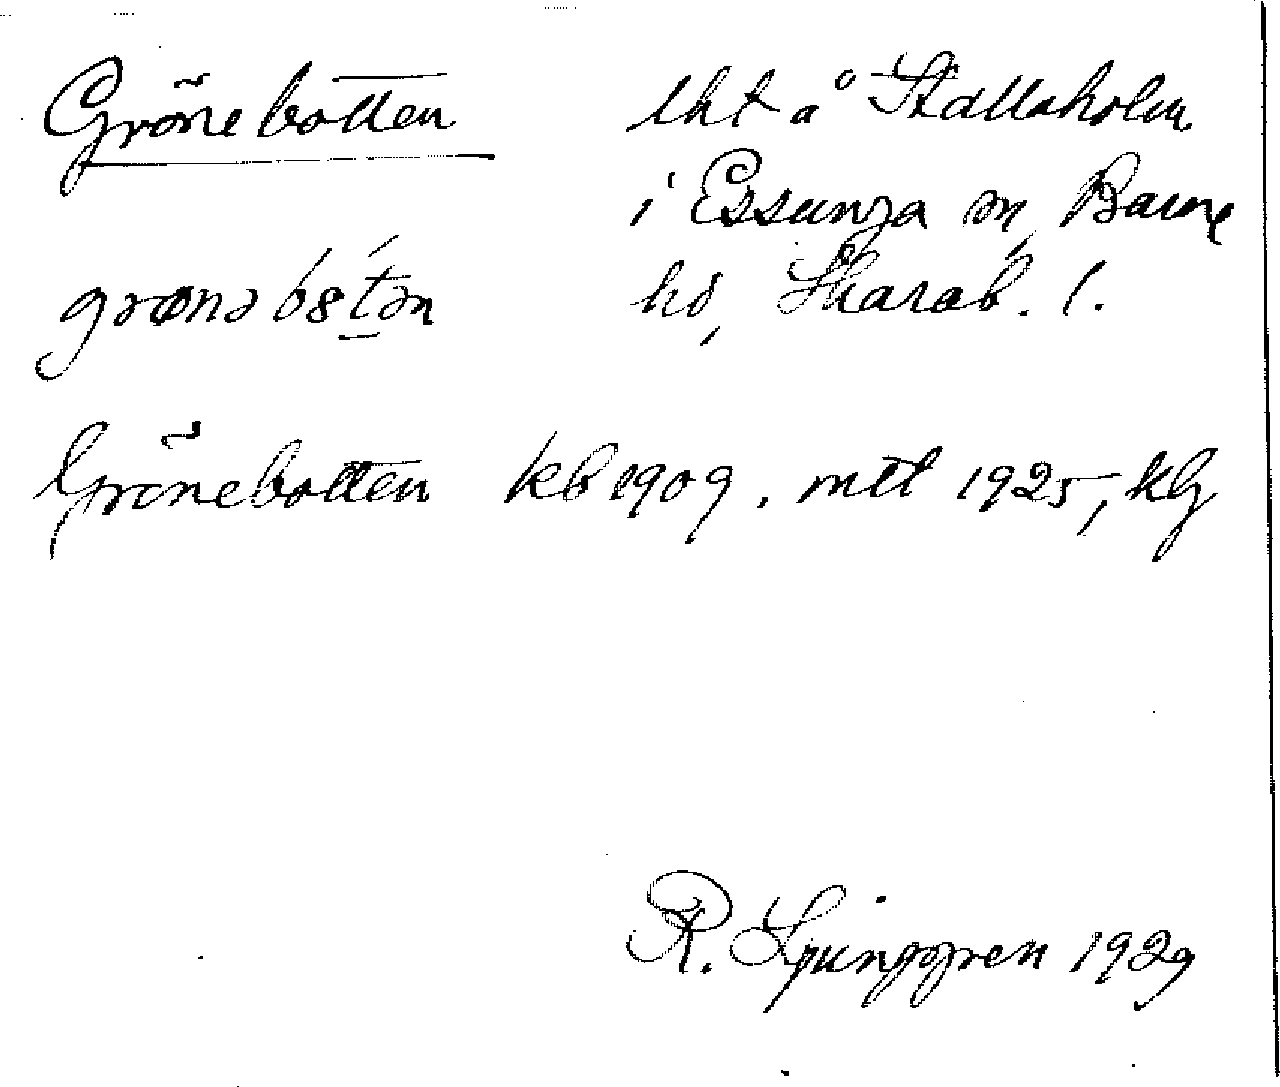 Grönebotten lht å Stallaholm
i Essunga sn, Barne
grønəbƨtən hd, Skarab. l.
Grönebotten kb 1909, mtl 1925, kg
R. Ljunggren 1929